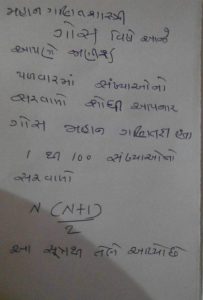 મહાન ગણિતશાસ્ત્રી
ગોસ વિષે આજે
આપણે જાણીશું
પળવારમાં સંખ્યાઓનો
સરવાળો શોધી આપનાર
ગોસ મહાન ગણિતજ્ઞ હતા
1 થી 100 સંખ્યાઓનો
સરવાળો
N (N+1)
2
આ સૂત્ર તેને આપ્યું છે